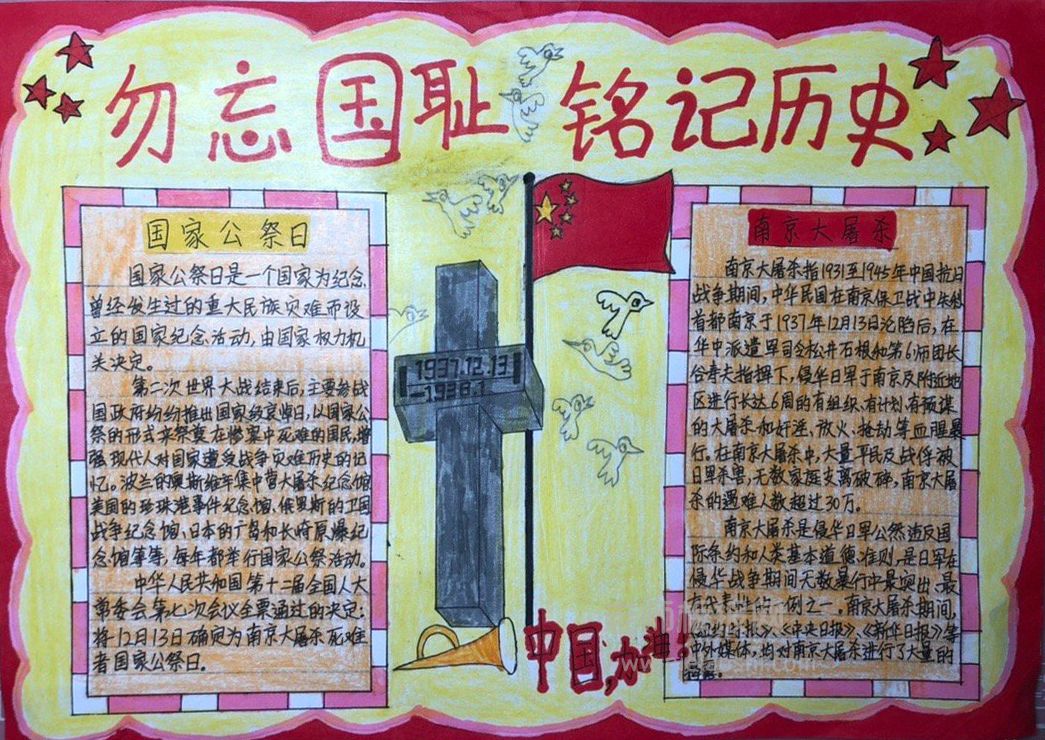 勿忘国耻 铭记历史
国家公祭日
国家公祭日是一个国家为纪念
曾经发生过的重大民族灾难而设
立的国家纪念活动,由国家权力机
关决定。
第二次世界大战结束后,主要参战
国政府纷纷推出国家级哀悼日,以国家公
祭的形式来祭奠在惨案中死难的国民,增
强现代人对国家遭受战争灾难历史的记
忆。波兰的奥斯维辛集中营大屠杀纪念馆
美国的珍珠港事件纪念馆、俄罗斯的卫国
战争纪念馆、日本的广岛和长崎原爆纪
念馆等等,每年都举行国家公祭活动。
中华人民共和国第十二届全国人大
常委会第七次会议全票通过的决定:
将12月13日确定为南京大屠杀死难
者国家公祭日。
1937.12.13
—1938.1
中国,加油!
南京大屠杀
南京大屠杀指1931至1945年中国抗日
战争期间,中华民国在南京保卫战中失利
首都南京于1937年12月13日沦陷后,在
华中派遣军司令松井石根和第6师团长
谷寿夫指挥下,侵华日军于南京及附近地
区进行长达6周的有组织、有计划、有预谋
的大屠杀和奸淫、放火、抢劫等血腥暴
行。在南京大屠杀中,大量平民及战俘被
日军杀害,无数家庭支离破碎,南京大屠
杀的遇难人数超过30万。
南京大屠杀是侵华日军公然违反国
际条约和人类基本道德准则,是日军在
侵华战争期间无数暴行中最突出、最
有代表性的一例之一,南京大屠杀期间,
《纽约时报》、《中央日报》、《新华日报》等
中外媒体,均对南京大屠杀进行了大量的